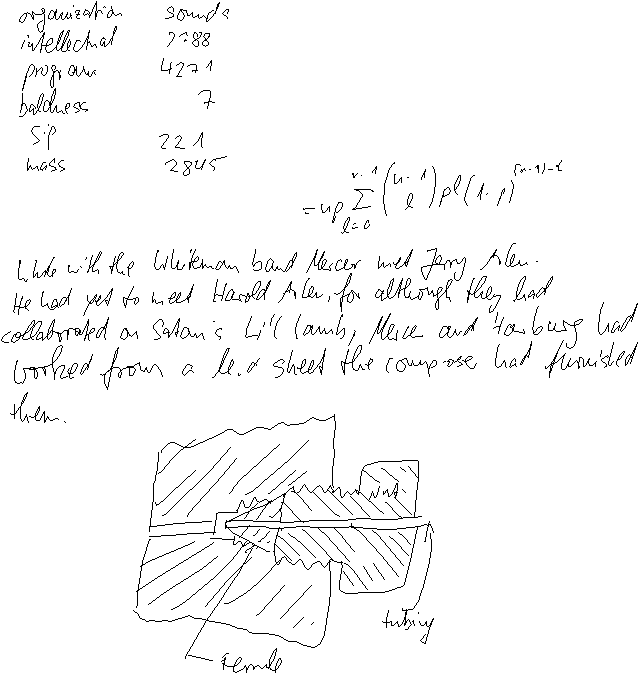 organization sounds
intellectual 2788
program 4271
baldness 7
Sip 221
mass 2845
= np \sum_{l=0}^{n-1} \binom{n-1}{l} p^l (1-p)^{(n-1)-l}
While with the Whiteman band Mercer met Jerry Arlen.
He had yet to meet Harold Arlen, for although they had
collaborated on Satan's Li'l Lamb, Mercer and Harburg had
worked from a lead sheet the composer had furnished
them.
Nut
tubing
Ferrule